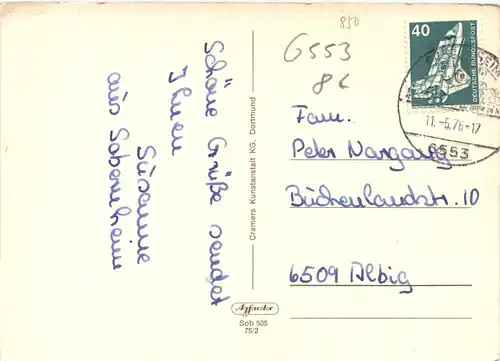 Schöne Grüße sendet
Ihnen
Susanne
aus Sobernheim
Cramers Kunstanstalt KG, Dortmund
Sob 505
75/2
850
6553
8 L
40
DEUTSCHE BUNDESPOST
11.-5.76-17
6553
Fam.
Peter Nargang
Büchenlandstr. 10
6509 Albig